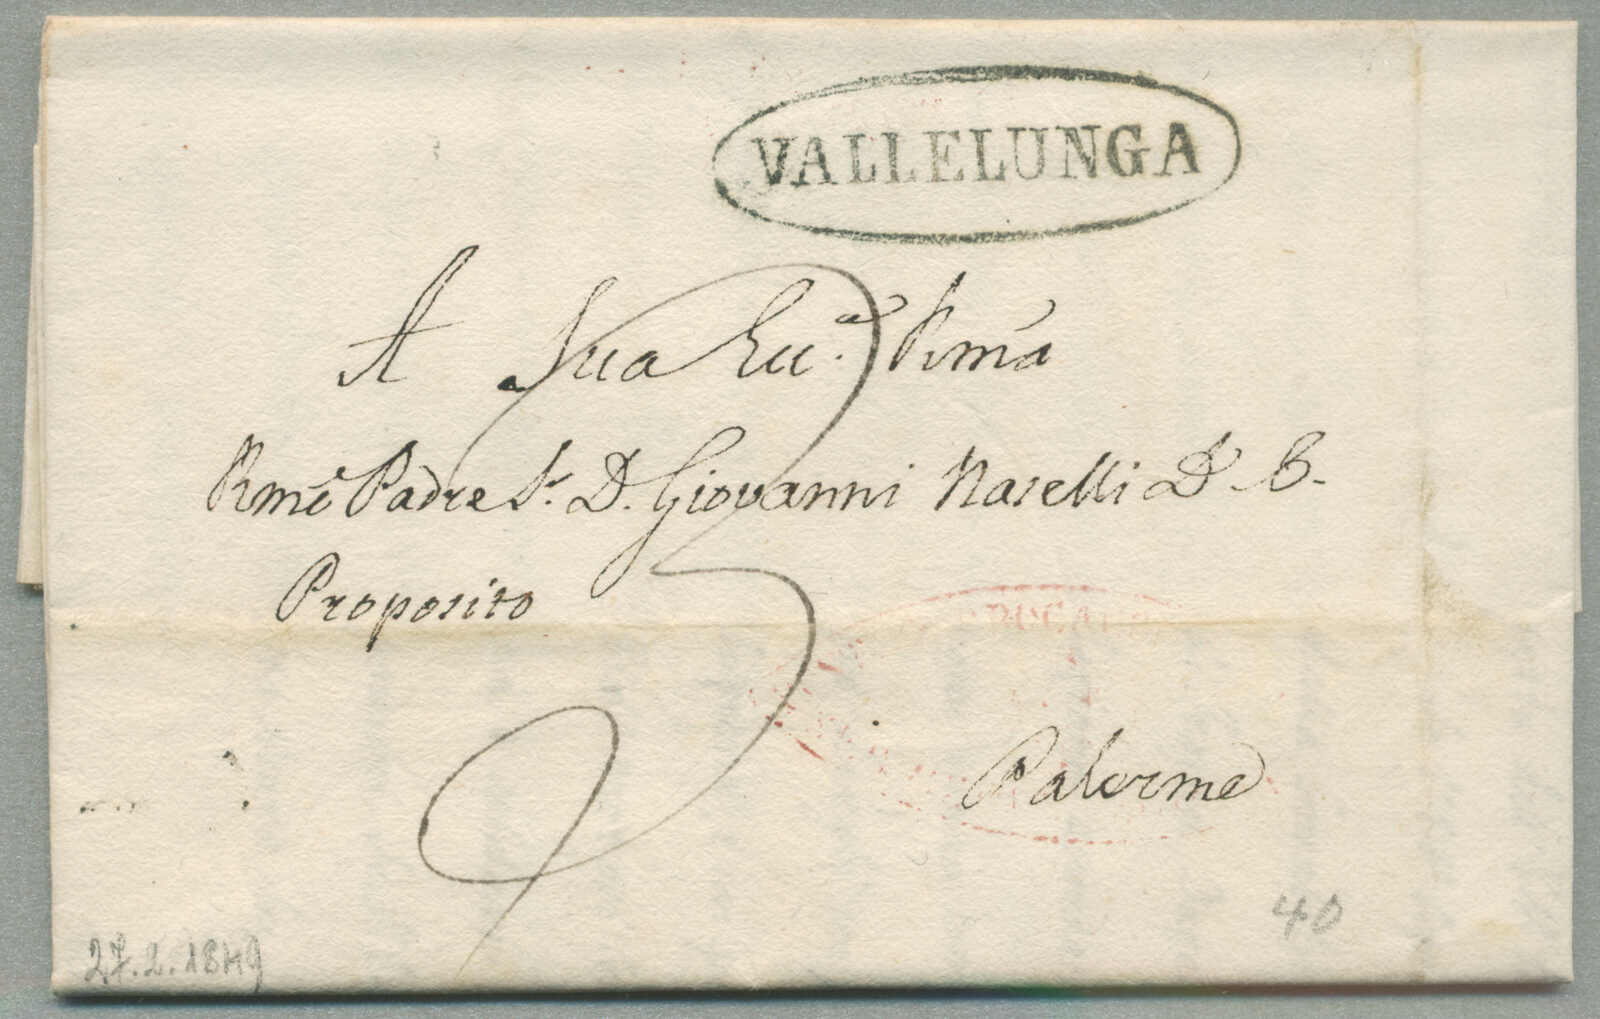 VALLELUNGA
A Sua Ecc.ª Rm̃a
Rm̃o Padre Sr. D. Giovanni Naselli D. B.
Proposito
3
Palermo
40
27.2.1849